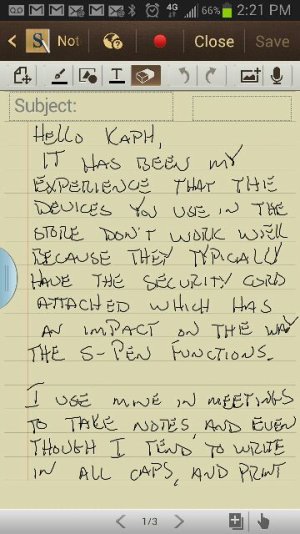 4G 66% 2:21 PM
S Not Close Save
T
Subject:
HELLO KAPH,
IT HAS BEEN MY
EXPERIENCE THAT THE
DEVICES YOU USE IN THE
STORE DON'T WORK WELL
BECAUSE THEY TYPICALLY
HAVE THE SECURITY CORD
ATTACHED WHICH HAS
AN IMPACT ON THE WAY
THE S-PEN FUNCTIONS.
I USE MINE IN MEETINGS
TO TAKE NOTES, AND EVEN
THOUGH I TEND TO WRITE
IN ALL CAPS, AND PRINT
1/3